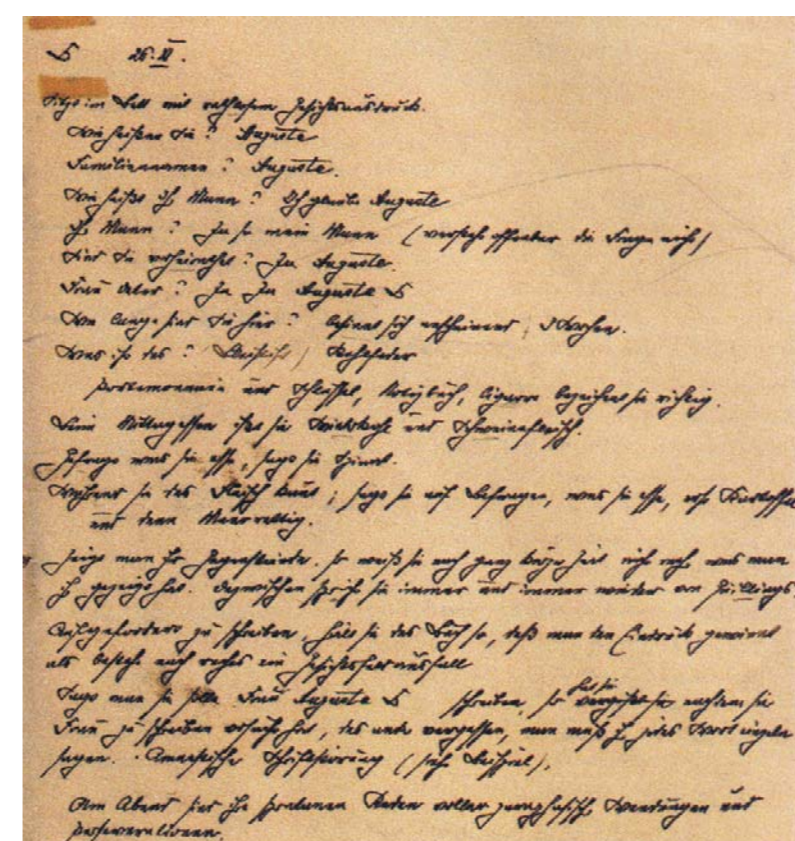 D 26. XI.
Sitzt im Bett mit rathlosem Gesichtsausdruck.
Wie heissen Sie? Auguste
Familienname? Auguste.
Wie heisst Ihr Mann? Ich glaube Auguste
Ihr Mann? Ja so mein Mann (versteht offenbar die Frage nicht)
Sind Sie verheirathet? Zu Auguste.
Frau D? Ja zu Auguste D
Wie lange sind Sie hier? besinnt sich anscheinend, 3 Wochen.
Was ist das? (Bleistift) Stahlfeder
Portemonnaie und Schlüssel, Notizbuch, Cigarre bezeichnet sie richtig.
Beim Mittagessen isst sie und Schweinefleisch.
Gefragt was sie esse, sagt sie Spinat.
Während sie das Fleisch kaut; sagt sie auf Befragen, was sie esse, erst Kartoffeln
und dann Meerrettig.
Zeigt man ihr Gegenstände, so weiß sie nach ganz kurzer Zeit nicht mehr, was man
ihr gezeigt hat. dazwischen spricht sie immer und immer wieder von Zwillings
Aufgefordert zu schreiben, hält sie das Buch so, daß man den Eindruck gewinnt
als bestehe nach rechts ein Gesichtsfeldausfall
Sagt man sie solle Frau Auguste D schreiben, so nachdem sie
Frau zu schreiben versucht hat, das andere vergessen, man muß ihr jedes Wort einzeln
sagen. Amnestische Schriftstörung (siehe Beispiel).
Am Abend sind ihre spontanen Reden voller paraphasischer Wendungen und
Perseverationen.